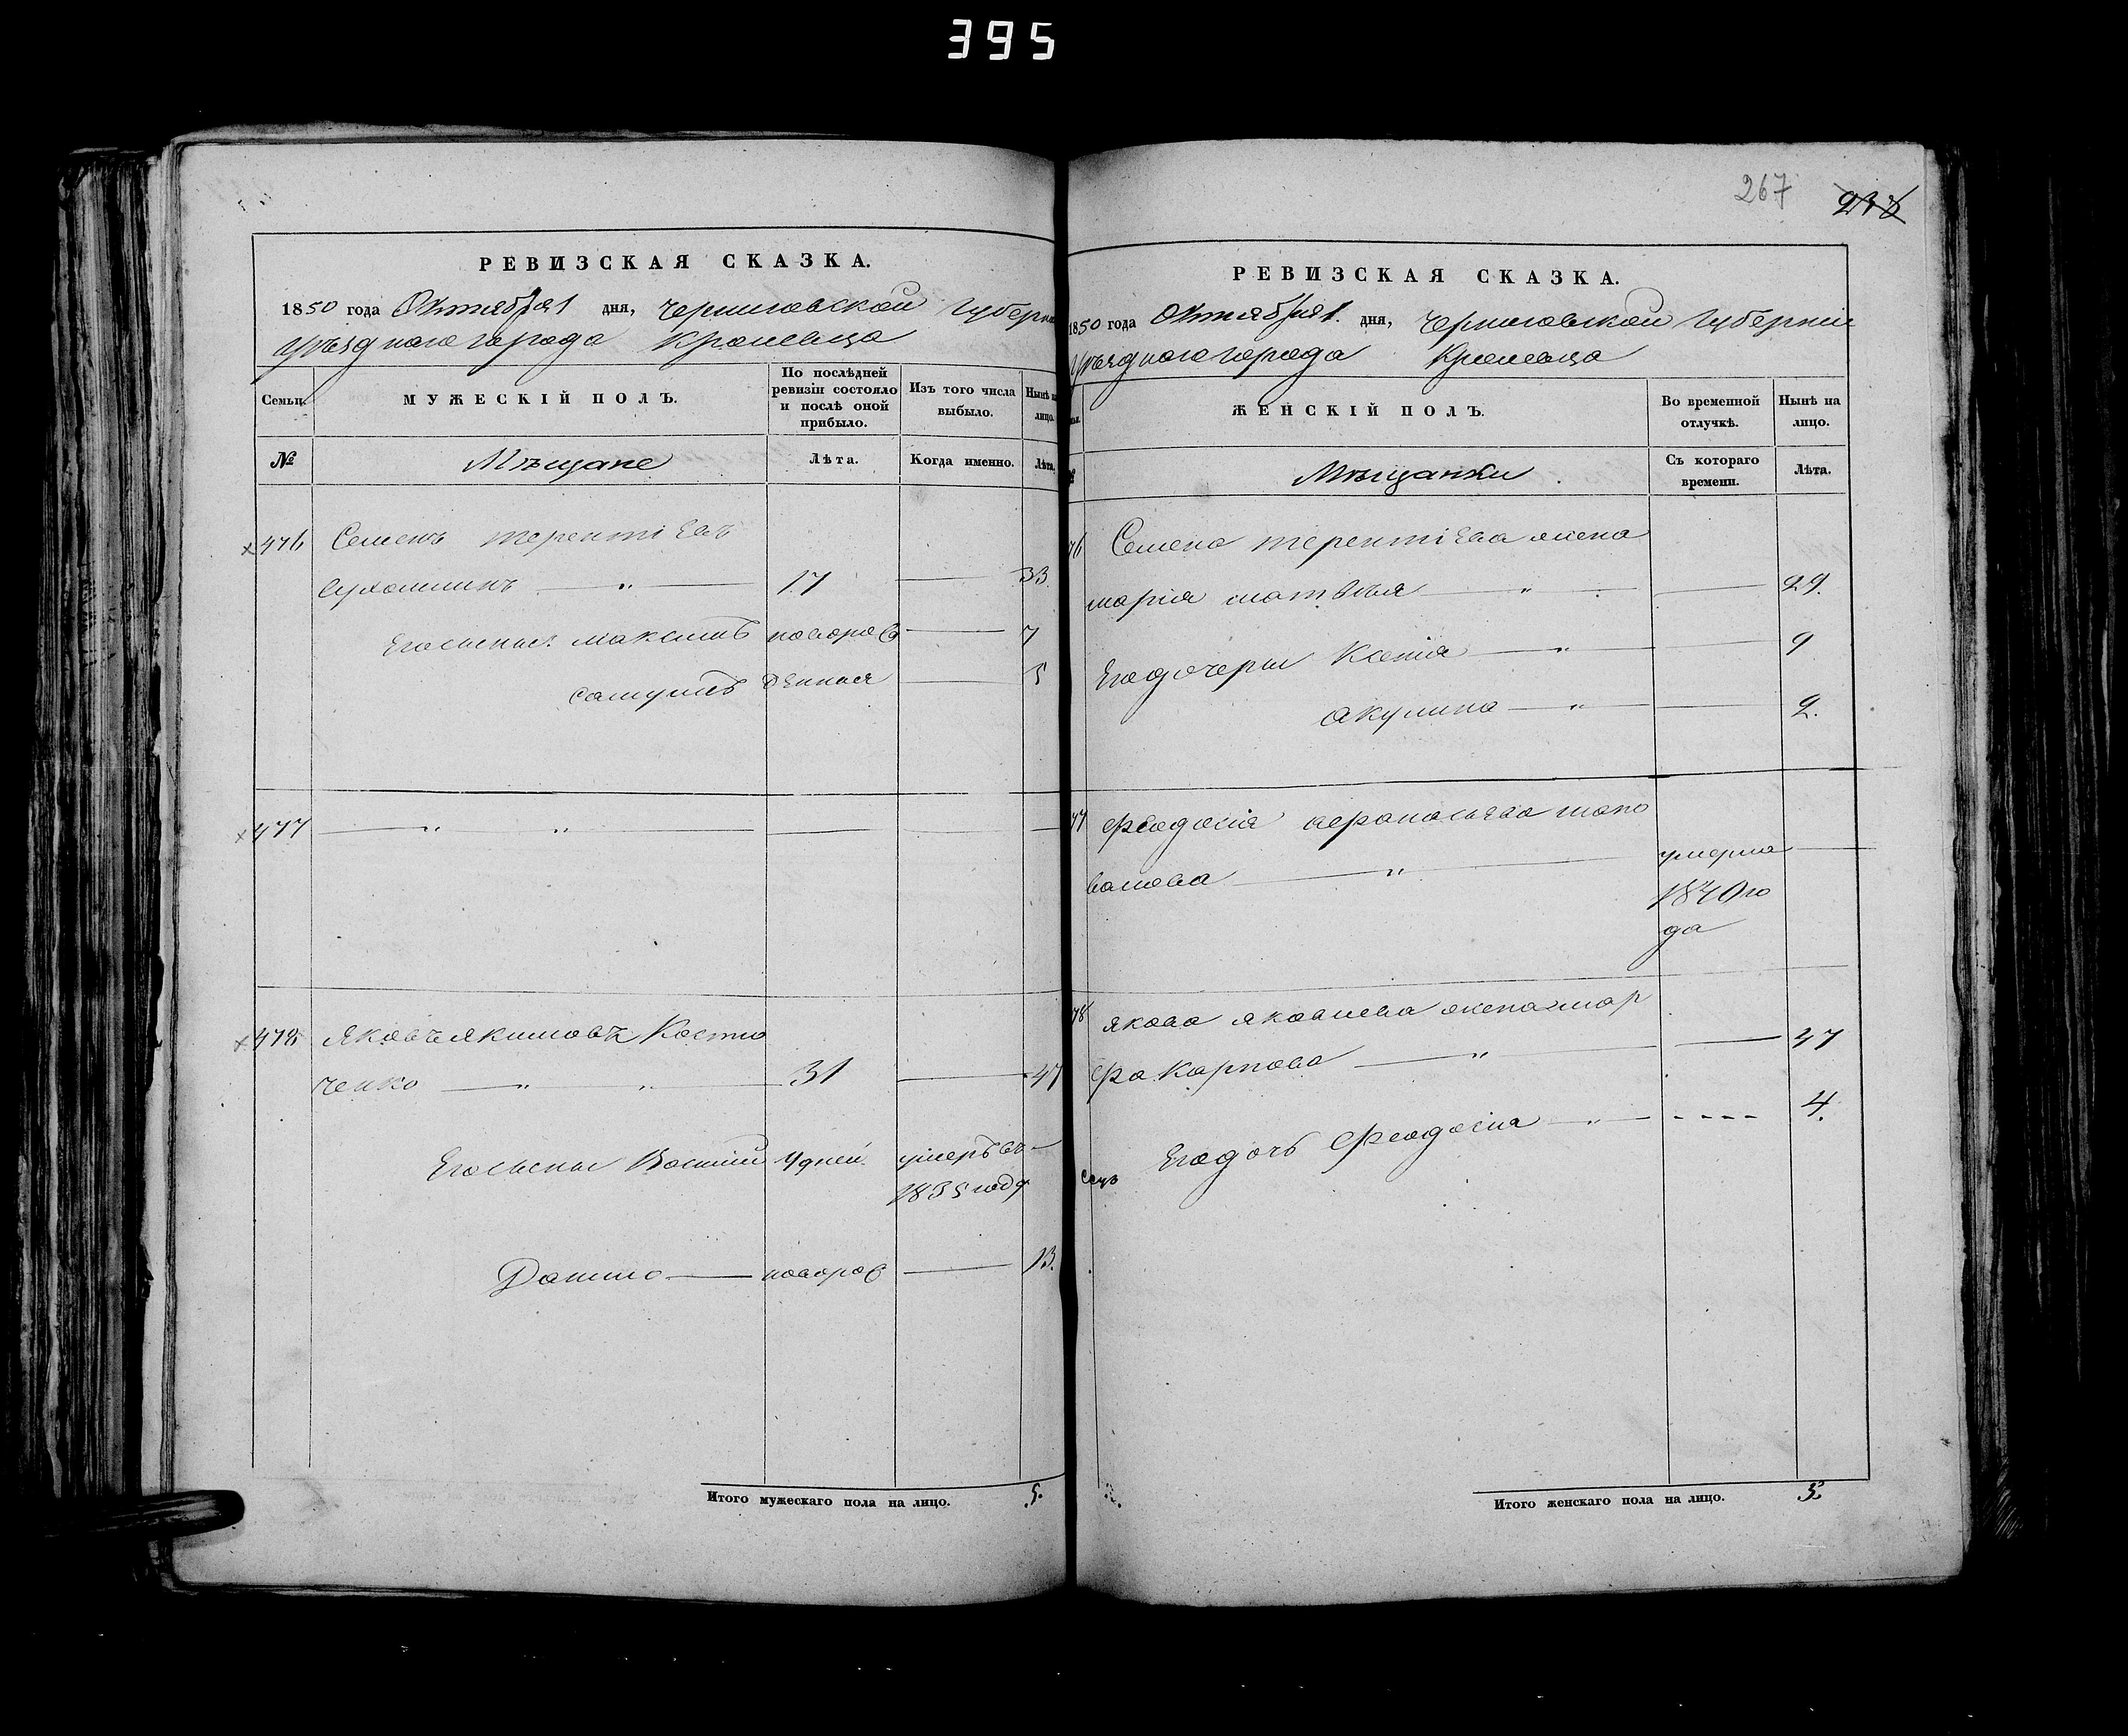 395
РЕВИЗСКАЯ СКАЗКА.
1850 года Октября 1 дня, Черниговской Губерн
Уѣзднаго города Кролевца
Семьи.
МУЖЕСКІЙ ПОЛЪ.
По послѣдней ревизіи состояло и послѣ оной прибыло.
Изъ того числа выбыло.
Нынѣ на лицо.
№
Мѣщане
Лѣта.
Когда именно.
Лѣта.
х476 Семенъ Терентіевъ
17 33.
Его сыны: Максимъ новорож 7
Самуилъ денныя 5
х477
х478 Яковъ Якимовъ Костю
ченко 31 47
Его сыны Василій 4 дней умеръ въ
1835 году
Данило новорож 13.
Итого мужескаго пола на лицо. 5.
267
РЕВИЗСКАЯ СКАЗКА.
1850 года Октября 1. дня, Черниговской Губерніи
Уѣзднаго города Кролевца
ЖЕНСКІЙ ПОЛЪ.
Во временной отлучкѣ.
Нынѣ на лицо.
Мѣщанки
Съ котораго времени.
Лѣта.
76 Семена Терентіева жена
Марія Матвѣя 29.
Его дочери Ксенія 9
Акулина 2.
77 Феодосія
умерла
1840 го
да
78 Якова Яковлева жена Мар
фа Карпова 47
Его дочь Феодосія 4.
Итого женскаго пола на лицо. 5.